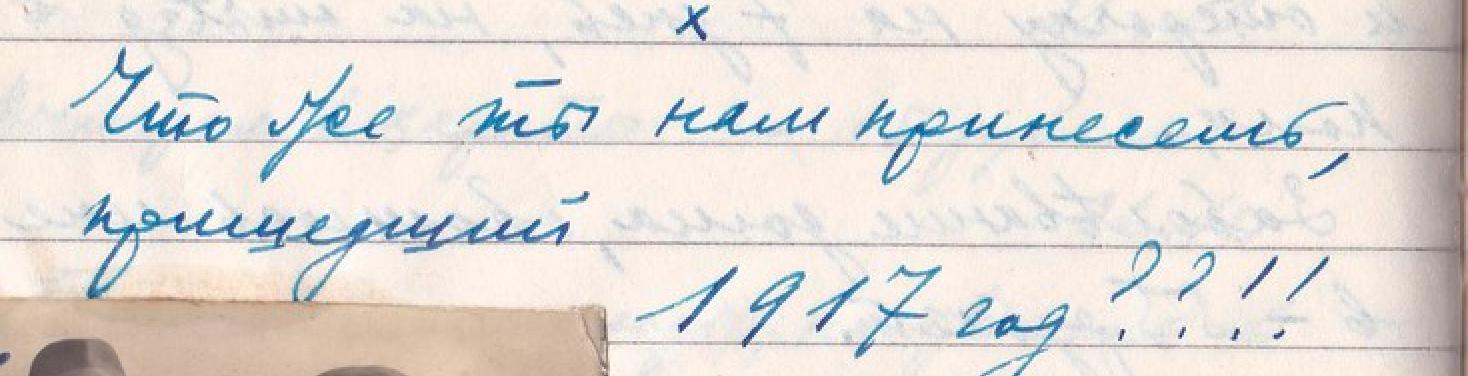 х
Что же ты нам принесешь,
пришедший
1917 год??!!